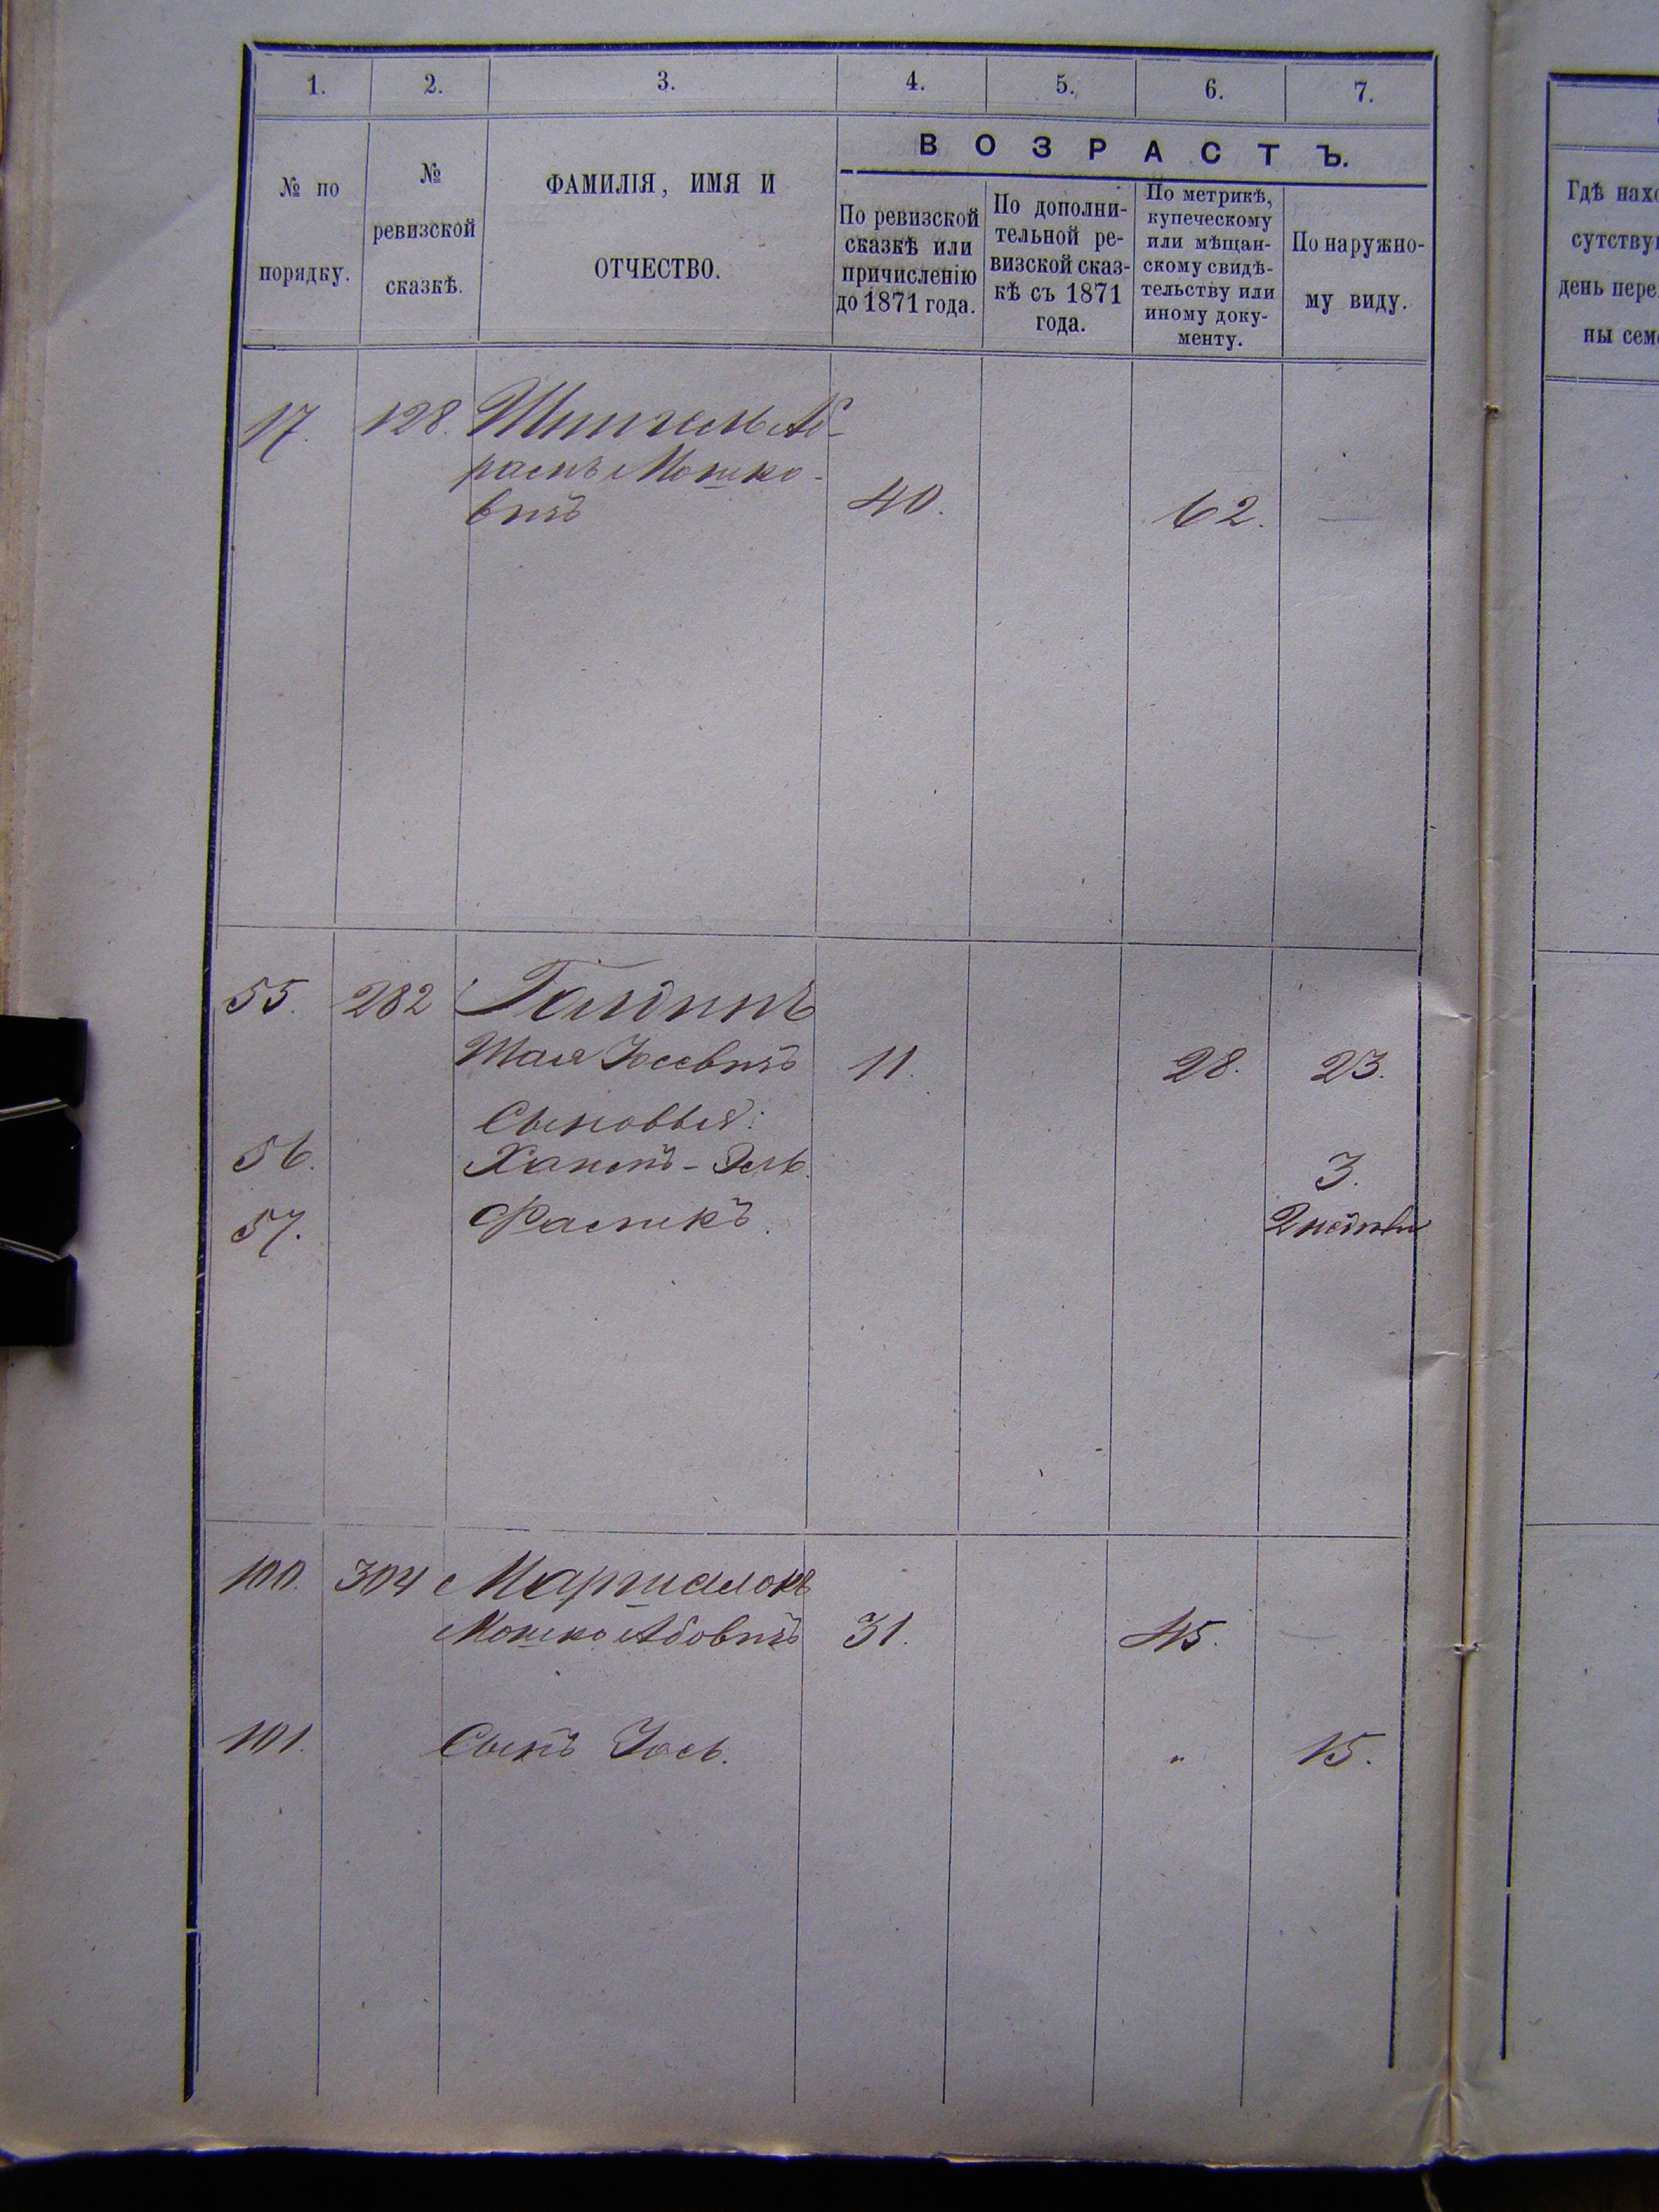 1. 2. 3. 4. 5. 6. 7.
№ по порядку.
№ ревизской сказкѣ.
ФАМИЛІЯ, ИМЯ И
ОТЧЕСТВО.
ВОЗРАСТЪ.
По ревизской
сказкѣ или
причисленію
до 1871 года.
По дополни-
тельной ре-
визской сказ-
кѣ съ 1871
года.
По метрикѣ,
купеческому
или мѣщан-
скому свидѣ-
тельству или
иному доку-
менту.
По наружно-
му виду.
17. 128. Шпигель Аб-
рамъ Мошко-
вичъ 40. 62. —
55. 282 Голдинъ
Шая Іосевичъ 11. 28. 23.
Сыновья:
56. Хаимъ-Эль. 3.
57. Файтекъ. 2 недѣли
100. 304 Маршалокъ
Мошко Абовичъ 31. 45. —
101. Сынъ Іось. " 15.
Гдѣ нахо
сутству
день пере
ны сем